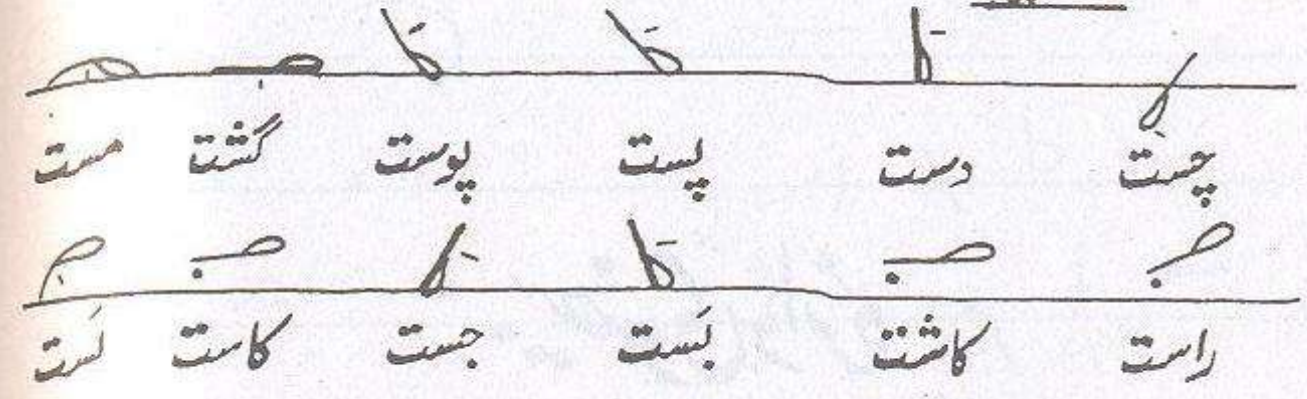 چست دست پست پوست گشت مست
راست کاشت بَست جست کاست لَست